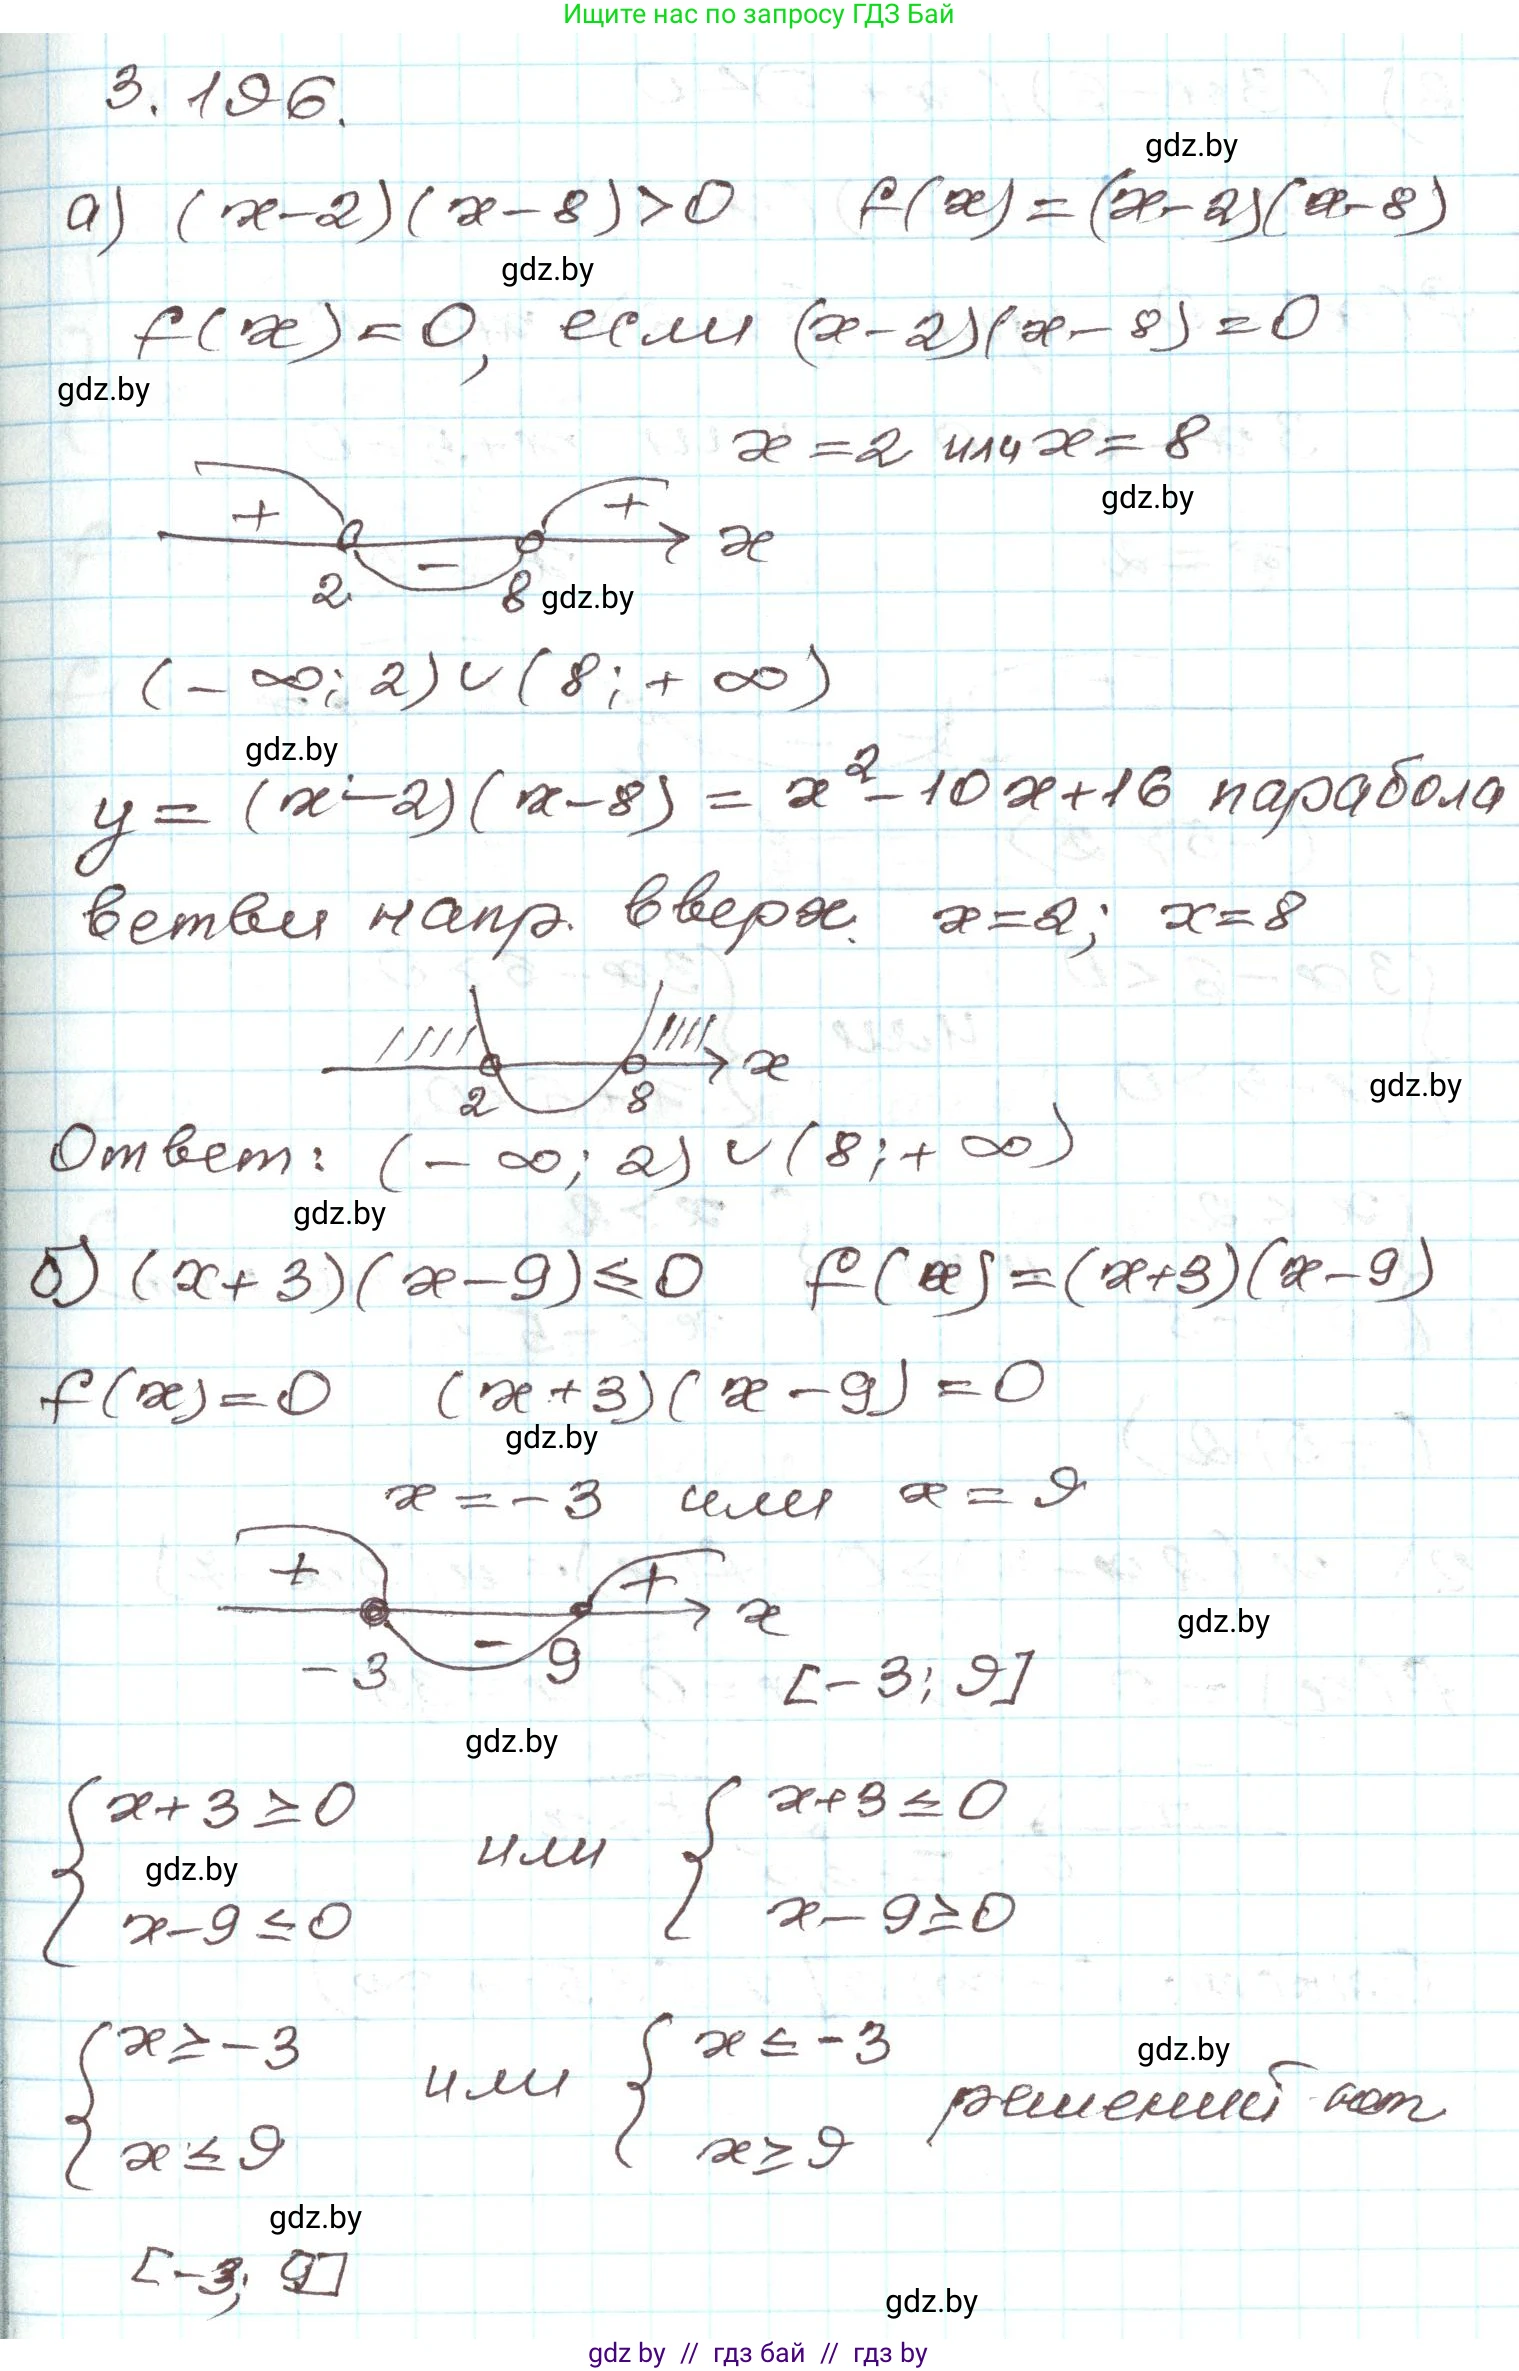 Ищите нас по запросу ГДЗ Бай
3.196.
gdz.by
а) (x-2)(x-8)>0 f(x)=(x-2)(x-8)
gdz.by
f(x)=0, если (x-2)(x-8)=0
gdz.by
x=2 или x=8
gdz.by
+ - + x
2 8 gdz.by
(-∞; 2)∪(8;+∞)
gdz.by
y=(x-2)(x-8)=x²-10x+16 парабола
ветви напр. вверх. x=2; x=8
x
2 8
gdz.by
Ответ: (-∞; 2)∪(8;+∞)
gdz.by
б) (x+3)(x-9)≤0 f(x)=(x+3)(x-9)
f(x)=0 (x+3)(x-9)=0
gdz.by
x=-3 или x=9
+ - + x
gdz.by
-3 9 [-3; 9]
gdz.by
{x+3≥0 или {x+3≤0
gdz.by
x-9≤0 x-9≥0
{x≥-3 или {x≤-3
gdz.by
x≤9 x≥9 решений нет
gdz.by
[-3; 9]
gdz.by
gdz by // гдз бай // гдз by